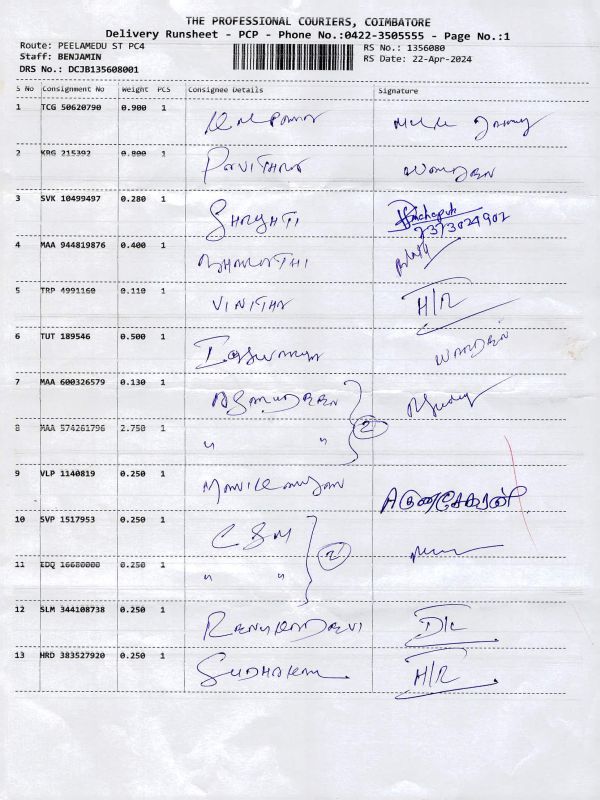 THE PROFESSIONAL COURIERS, COIMBATORE
Delivery Runsheet - PCP - Phone No.:0422-3505555 - Page No.:1
Route: PEELAMEDU ST PC4
RS No.: 1356080
Staff: BENJAMIN
RS Date: 22-Apr-2024
DRS No.: DCJB135608001
S No Consignment No Weight PCS Consignee Details Signature
1 TCG 50620790 0.900 1
2 KRG 215392 0.800 1 PAVITHRA WARDEN
3 SVK 10499497 0.280 1 SHRUHTI
7373029902
4 MAA 944819876 0.400 1 BHARATHI
5 TRP 4991160 0.110 1 VINITHA H/R
6 TUT 189546 0.500 1 WARDEN
7 MAA 600326579 0.130 1
8 MAA 574261796 2.750 1 " " 2
9 VLP 1140819 0.250 1
10 SVP 1517953 0.250 1 CSM
11 EDQ 16680000 0.250 1 " " 2
12 SLM 344108738 0.250 1 RENUKADEVI D/L
13 HRD 383527920 0.250 1 SUDHAKAR H/R